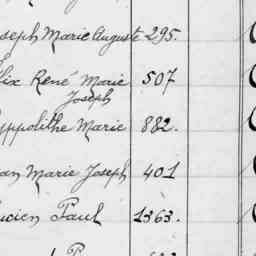 oseph Marie Auguste 295.
lix René Marie 507
Joseph
yppolithe Marie 882.
an Marie Joseph 401
ucien Paul 1363.